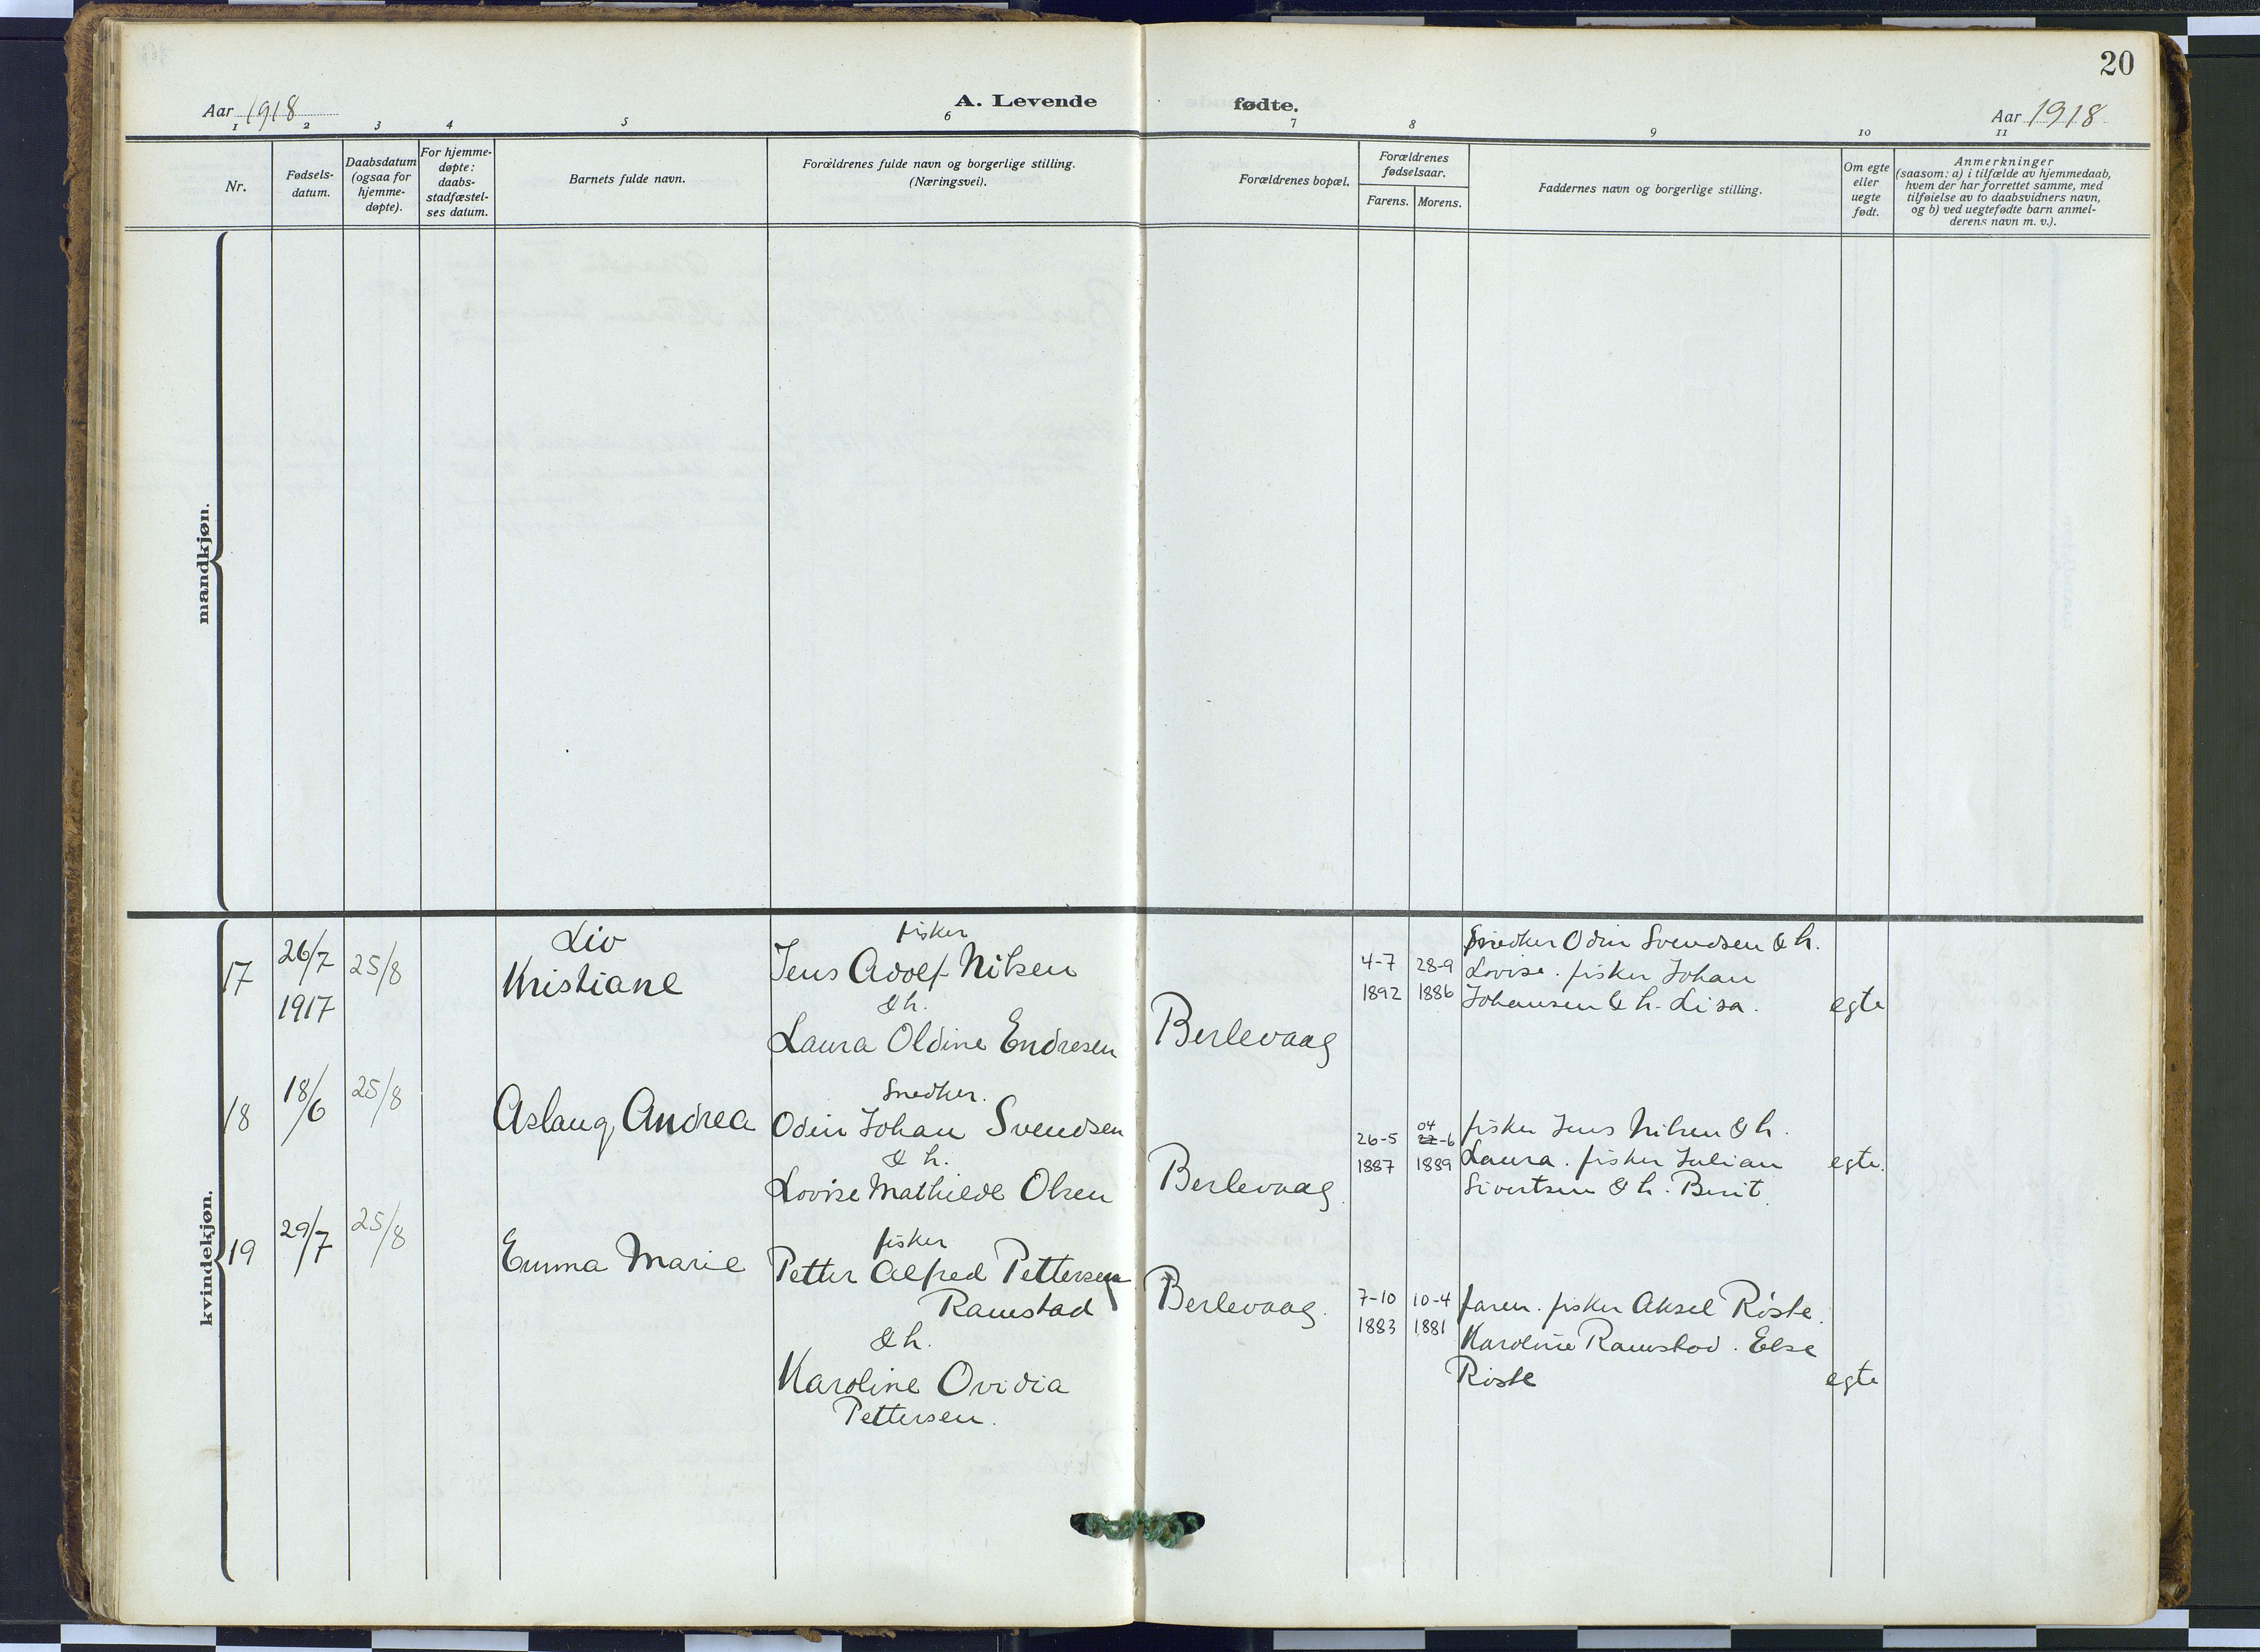 20
Aar 1918
A. Levende
fødte.
Aar 1918
1 2 3 4 5 6 7 8 9 10 11
Nr.
Fødsels-
datum.
Daabsdatum
(ogsaa for
hjemme-
døpte).
For hjemme-
døpte:
daabs-
stadfæstel-
ses datum.
Barnets fulde navn.
Forældrenes fulde navn og borgerlige stilling.
(Næringsvei).
Forældrenes bopæl.
Forældrenes
fødselsaar.
Farens. Morens.
Faddernes navn og borgerlige stilling.
Om egte
eller
uegte
født.
Anmerkninger
(saasom: a) i tilfælde av hjemmedaab,
hvem der har forrettet samme, med
tilføielse av to daabsvidners navn,
og b) ved uegtefødte barn anmel-
derens navn m. v.).
mandkjøn.
kvindekjøn.
17
26/7
1917
25/8
Liv
Kristiane
fisker
Jens Adolf Nilsen
& h.
Laura Oldine Endresen
Berlevaag
4-7
1892
28-9
1886
Snedker Odin Svendsen & h.
Lovise. fisker Johan
Johansen & h. Lisa.
egte
18
18/6
25/8
Aslaug Andrea
Snedker.
Odin Johan Svendsen
& h.
Lovise Mathilde Olsen
Berlevaag
26-5
1887
04
22-6
1889
fisker Jens Nilsen & h.
Laura. fisker Julian
Sivertsen & h. Berit.
egte.
19
29/7
25/8
Emma Marie
fisker
Petter Alfred Pettersen
Ramstad
& h.
Karoline Ovidia
Pettersen.
Berlevaag.
7-10
1883
10-4
1881
faren. fisker Aksel Röste.
Karoline Ramstad. Else
Röste
egte